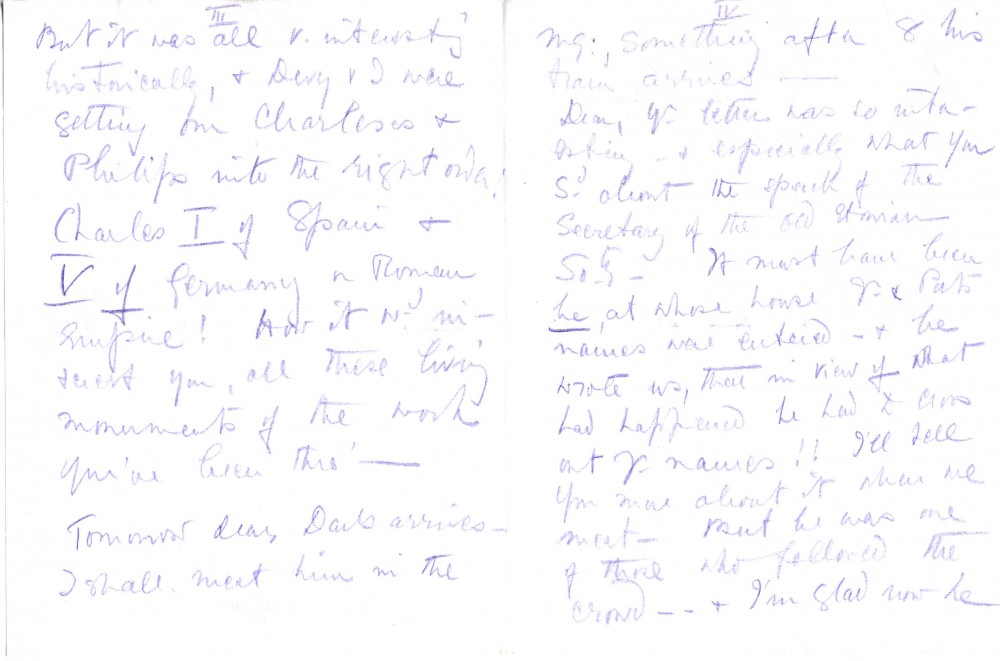 III
But it was all v. interestg
historically, & Devy & I were
getting our Charleses &
Philips into the right order!
Charles I of Spain &
V of Germany or Roman
Empire! How it wd in-
terest you, all these living
monuments of the work
you've been thro' —
Tomorrow dear Dads arrives —
I shall meet him in the
IV
mg:, Something after 8 his
train arrives —
Dear, yr letter was so inter-
esting — & especially what you
sd about the speech of the
Secretary of the Old Etonian
Socty — It must have been
he, at whose house Yr & Pat's
names were entered — & he
wrote us, that in view of what
had happened he had to cross
out yr names!! I'll tell
you more about it when we
meet — But he was one
of those who followed the
crowd — — & I'm glad now he